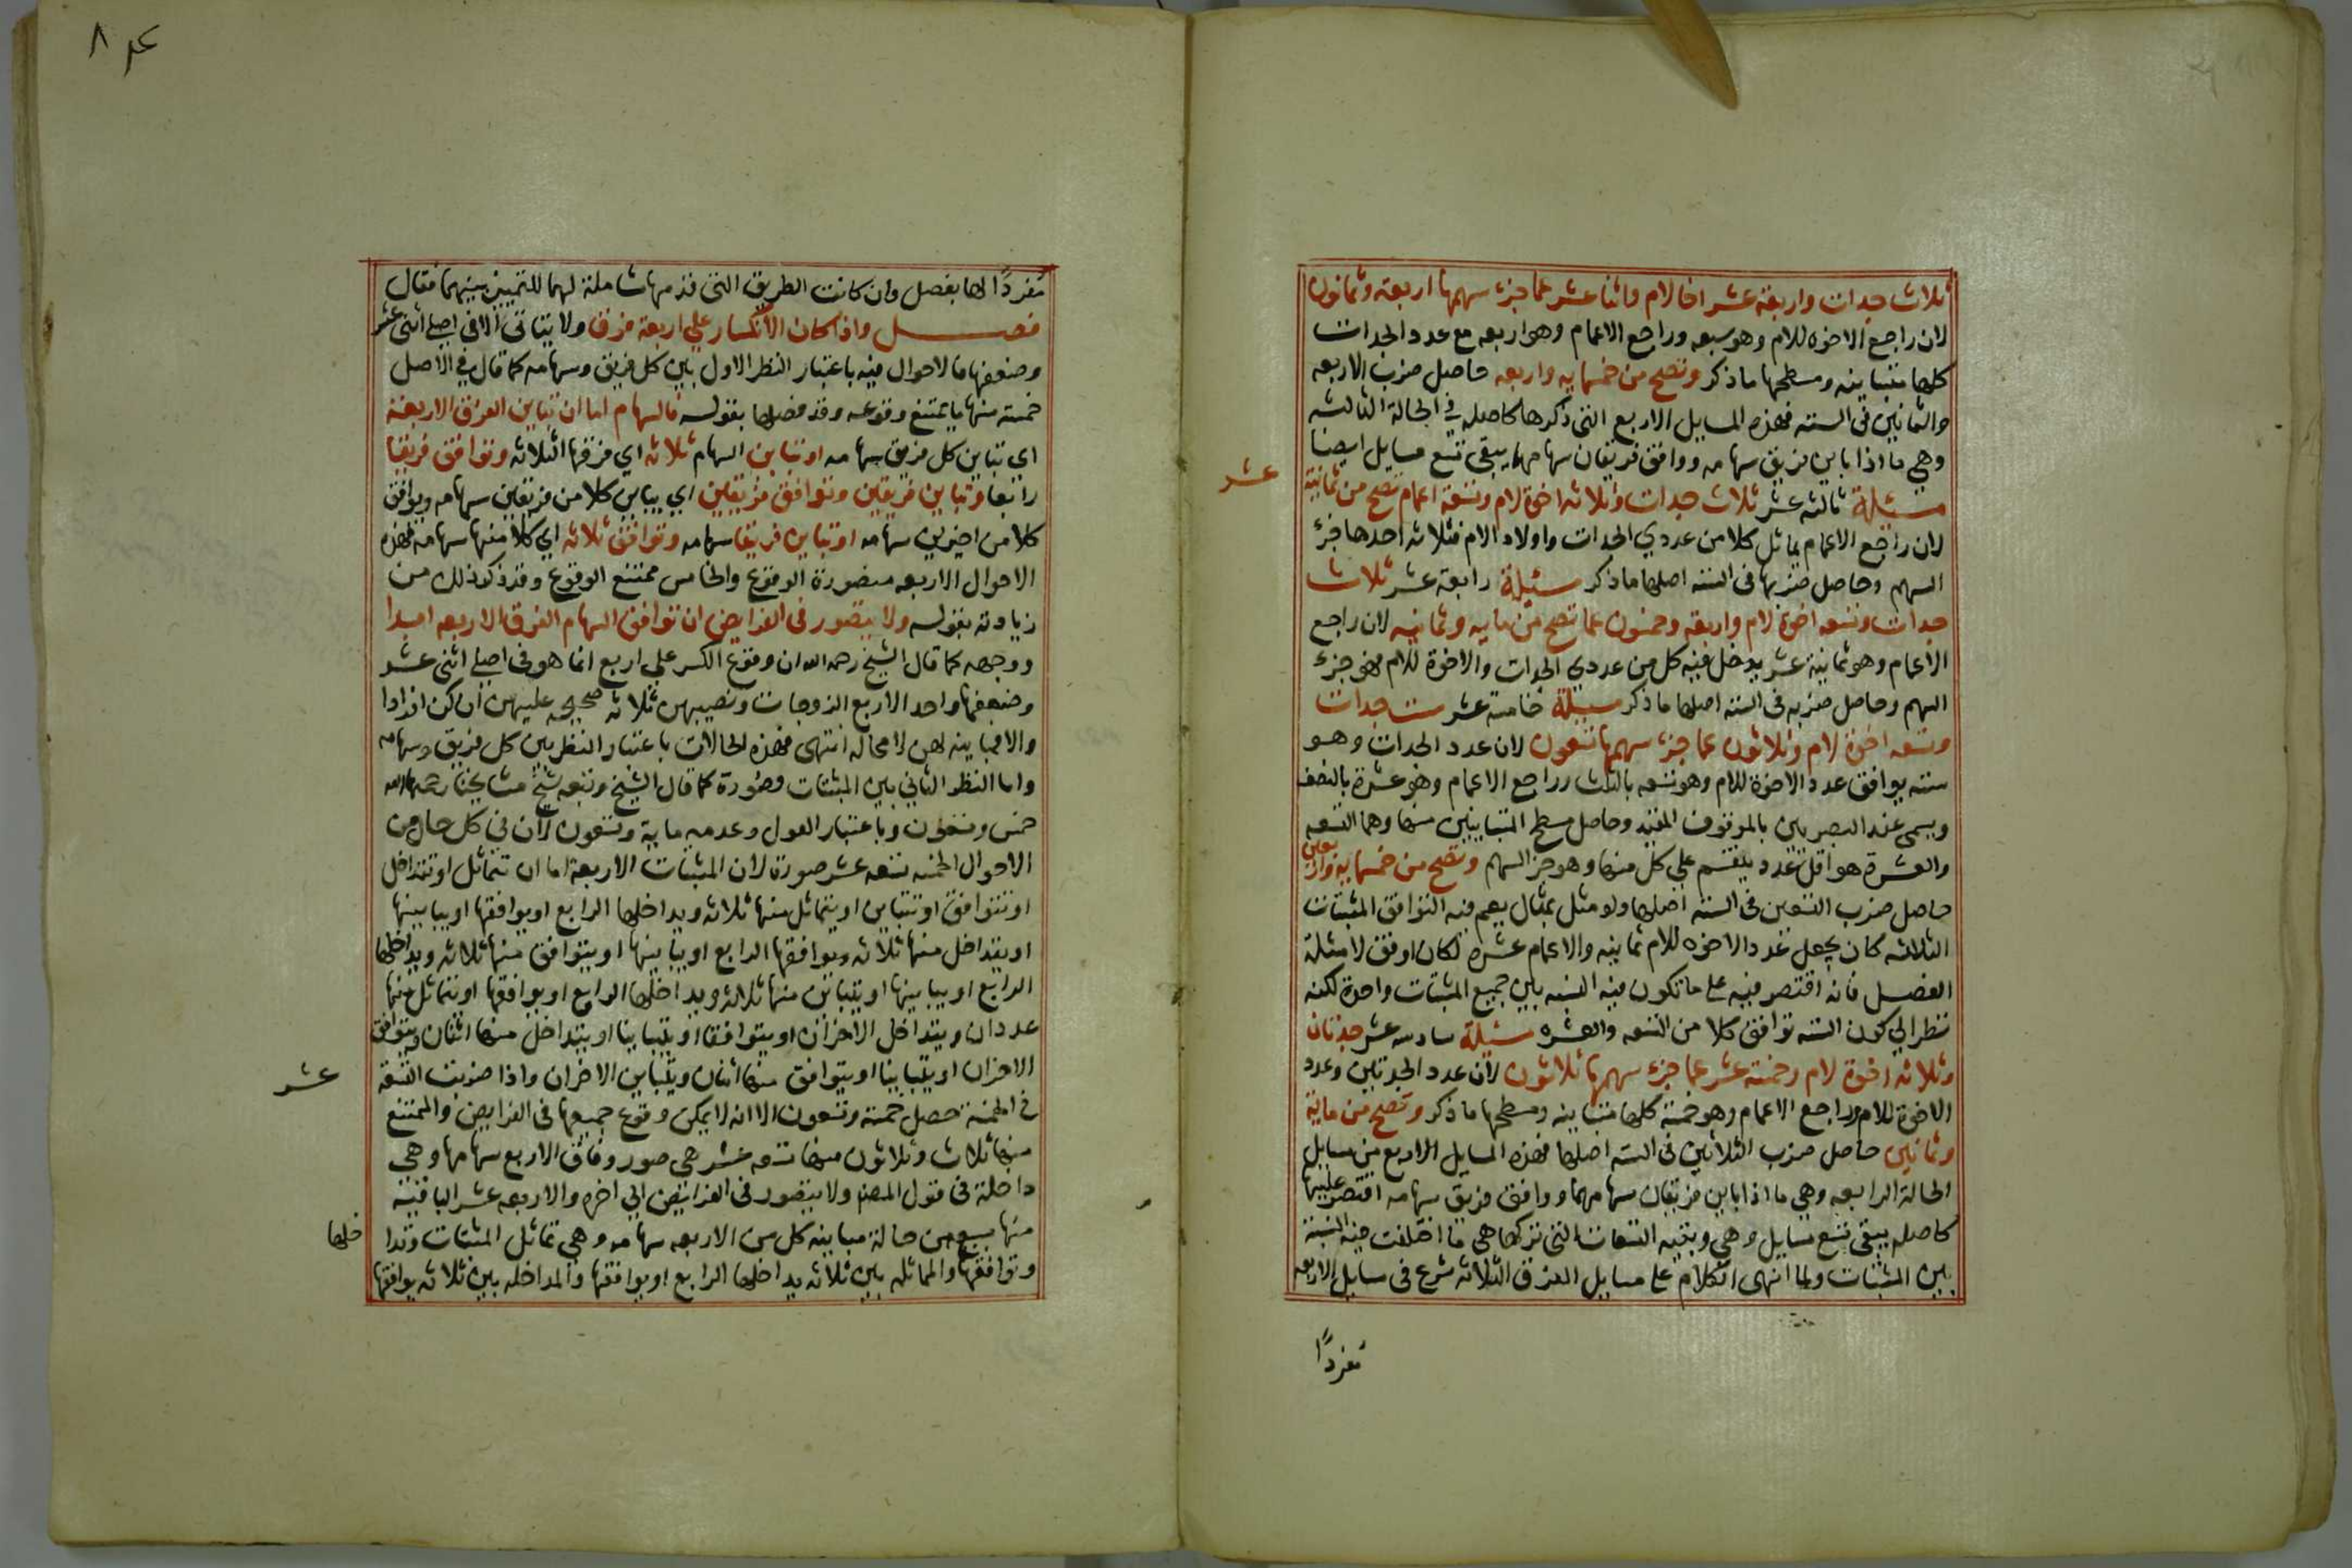 ثلاث جدات واربعة عشر اخا لام واثنا عشر عما جزء سهمها اربعة وثمانون
لان راجع الاخوه للام وهو سبعه وراجع الاعمام وهو اربعه مع عدد الجدات
كلها متباينه ومسطحها ما ذكر وتصح من خمسمايه واربعه حاصل ضرب الاربعه
والثمانين فى السته فهذه المسايل الاربع التى ذكرها كاصله في الحالة الثالثه
وهي ما اذا باين فريق سهامه ووافق فريقان سهامهما يبقى تسع مسايل ايضا
مسئلة ثالثه عشر ثلاث جدات وثلاثه اخوة لام وتسعة اعمام تصح من ثمانية
عشر
لان راجع الاعمام يماثل كلا من عددي الجدات واولاد الام فثلاثه احدها جزء
السهم وحاصل ضربها فى السته اصلها ما ذكر مسئلة رابعة عشر ثلاث
جدات وتسعه اخوة لام واربعة وخمسون عما تصح من مايه وثمانيه لان راجع
الاعمام وهو ثمانية عشر يدخل فيه كل من عددي الجدات والاخوة للام فهو جزء
السهم وحاصل ضربه فى السته اصلها ما ذكر مسئلة خامسة عشر ست جدات
وتسعه اخوة لام وثلاثون عما جزء سهمها تسعون لان عدد الجدات وهو
سته يوافق عدد الاخوة للام وهو تسعه بالثلث وراجع الاعمام وهو عشرة بالنصف
ويسمى عند البصريين بالموقوف المقيد وحاصل مسطح المتباينين منها وهما التسعه
والعشرة هو اقل عدد ينقسم على كل منها وهو جزء السهم وتصح من خمسمايه واربعين
حاصل ضرب التسعين فى السته اصلها ولو مثل بمثال يعم فيه التوافق المثبتات
الثلاثه كان يجعل عدد الاخوه للام ثمانيه والاعمام عشرة لكان اوفق لامثلة
الفصل فانه اقتصر فيه على ما تكون فيه النسبه بين جميع المثبتات واحدة لكنه
نظر الي كون السته توافق كلا من التسعه والعشره مسئلة سادسه عشر جدتان
وثلاثه اخوة لام وخمسة عشر عما جزء سهمها ثلاثون لان عدد الجدتين وعدد
الاخوة للام وراجع الاعمام وهو خمسة كلها متباينه ومسطحها ما ذكر وتصح من ماية
وثمانين حاصل ضرب الثلاثين فى السته اصلها فهذه المسايل الاربع من مسايل
الحالة الرابعه وهي ما اذا باين فريقان سهامهما ووافق فريق سهامه اقتصر عليها
كاصله يبقى تسع مسايل وهي وبقيه التسعات التى تركها هى ما اختلفت فيه النسبة
بين المثبتات ولما انهى الكلام على مسايل الفرق الثلاثه شرع فى مسايل الاربعه
مفردًا
٨
مفردًا لها بفصل وان كانت الطريق التى قدمها شاملة لهما للتمييز بينهما فقال
فصل واذا كان الانكسار علي اربعة فرق ولا يتاتى الا فى اصلي اثنى عشر
وضعفها فالاحوال فيه باعتبار النظر الاول بين كل فريق وسهامه كما قال في الاصل
خمسة منها ما يمتنع وقوعه وقد فصلها بقوله فالسهام اما ان تباين الفرق الاربعة
اي تباين كل فريق سهامه او تباين السهام ثلاثه اي فرقها الثلاثه وتوافق فريقا
رابعا او تباين فريقين وتوافق فريقين اي يباين كلا من فريقين سهامه ويوافق
كلا من اخيرين سهامه او تباين فريقا سهامه وتوافق ثلاثه اي كلا منها سهامه فهذه
الاحوال الاربعه متصورة الوقوع والخامس ممتنع الوقوع وقد ذكر ذلك من
زيادته بقوله ولا يتصور فى الفرايض ان توافق السهام الفرق الاربعه ابدا
ووجهه كما قال الشيخ رحمه الله ان وقوع الكسر على اربع انما هو فى اصلي اثنى عشر
وضعفها واحد الاربع الزوجات ونصيبهن ثلاثه صحيحه عليهن ان كن افرادا
والا فمباينه لهن لا محاله انتهى فهذه الحالات باعتبار النظر بين كل فريق وسهامه
واما النظر الثاني بين المثبتات فصوره كما قال الشيخ وتبعه شيخ مشايخنا رحمهما الله
خمس وتسعون وباعتبار العول وعدمه ماية وتسعون لان فى كل حال من
الاحوال الخمسه تسعه عشر صورة لان المثبتات الاربعة اما ان تتماثل او تتداخل
او تتوافق او تتباين او يتماثل منها ثلاثه ويداخلها الرابع او يوافقها او يباينها
او يتداخل منها ثلاثه ويوافقها الرابع او يباينها او يتوافق منها ثلاثه ويداخلها
الرابع او يباينها او يتباين منها ثلاثه ويداخلها الرابع او يوافقها او يتماثل منها
عددان ويتداخل الاخران او يتوافقا او يتباينا او يتداخل منها اثنان ويتوافق
الاخران او يتباينا او يتوافق منها اثنان ويتباين الاخران واذا ضربت التسعة
عشر
فى الخمسة حصل خمسة وتسعون الا انه لا يمكن وقوع جميعها فى الفرايض والممتنع
منها ثلاث وثلاثون منها تسعه عشر هى صور وفاق الاربع سهامها وهى
داخلة فى قول المصنف ولا يتصور فى الفرايض الي اخره والاربعه عشر الباقية
منها سبع من حالة مباينه كل من الاربعه سهامه وهي تماثل المثبتات وتدا
خلها
وتوافقها والمماثله بين ثلاثه يداخلها الرابع او يوافقها والمداخله بين ثلاثه يوافقها